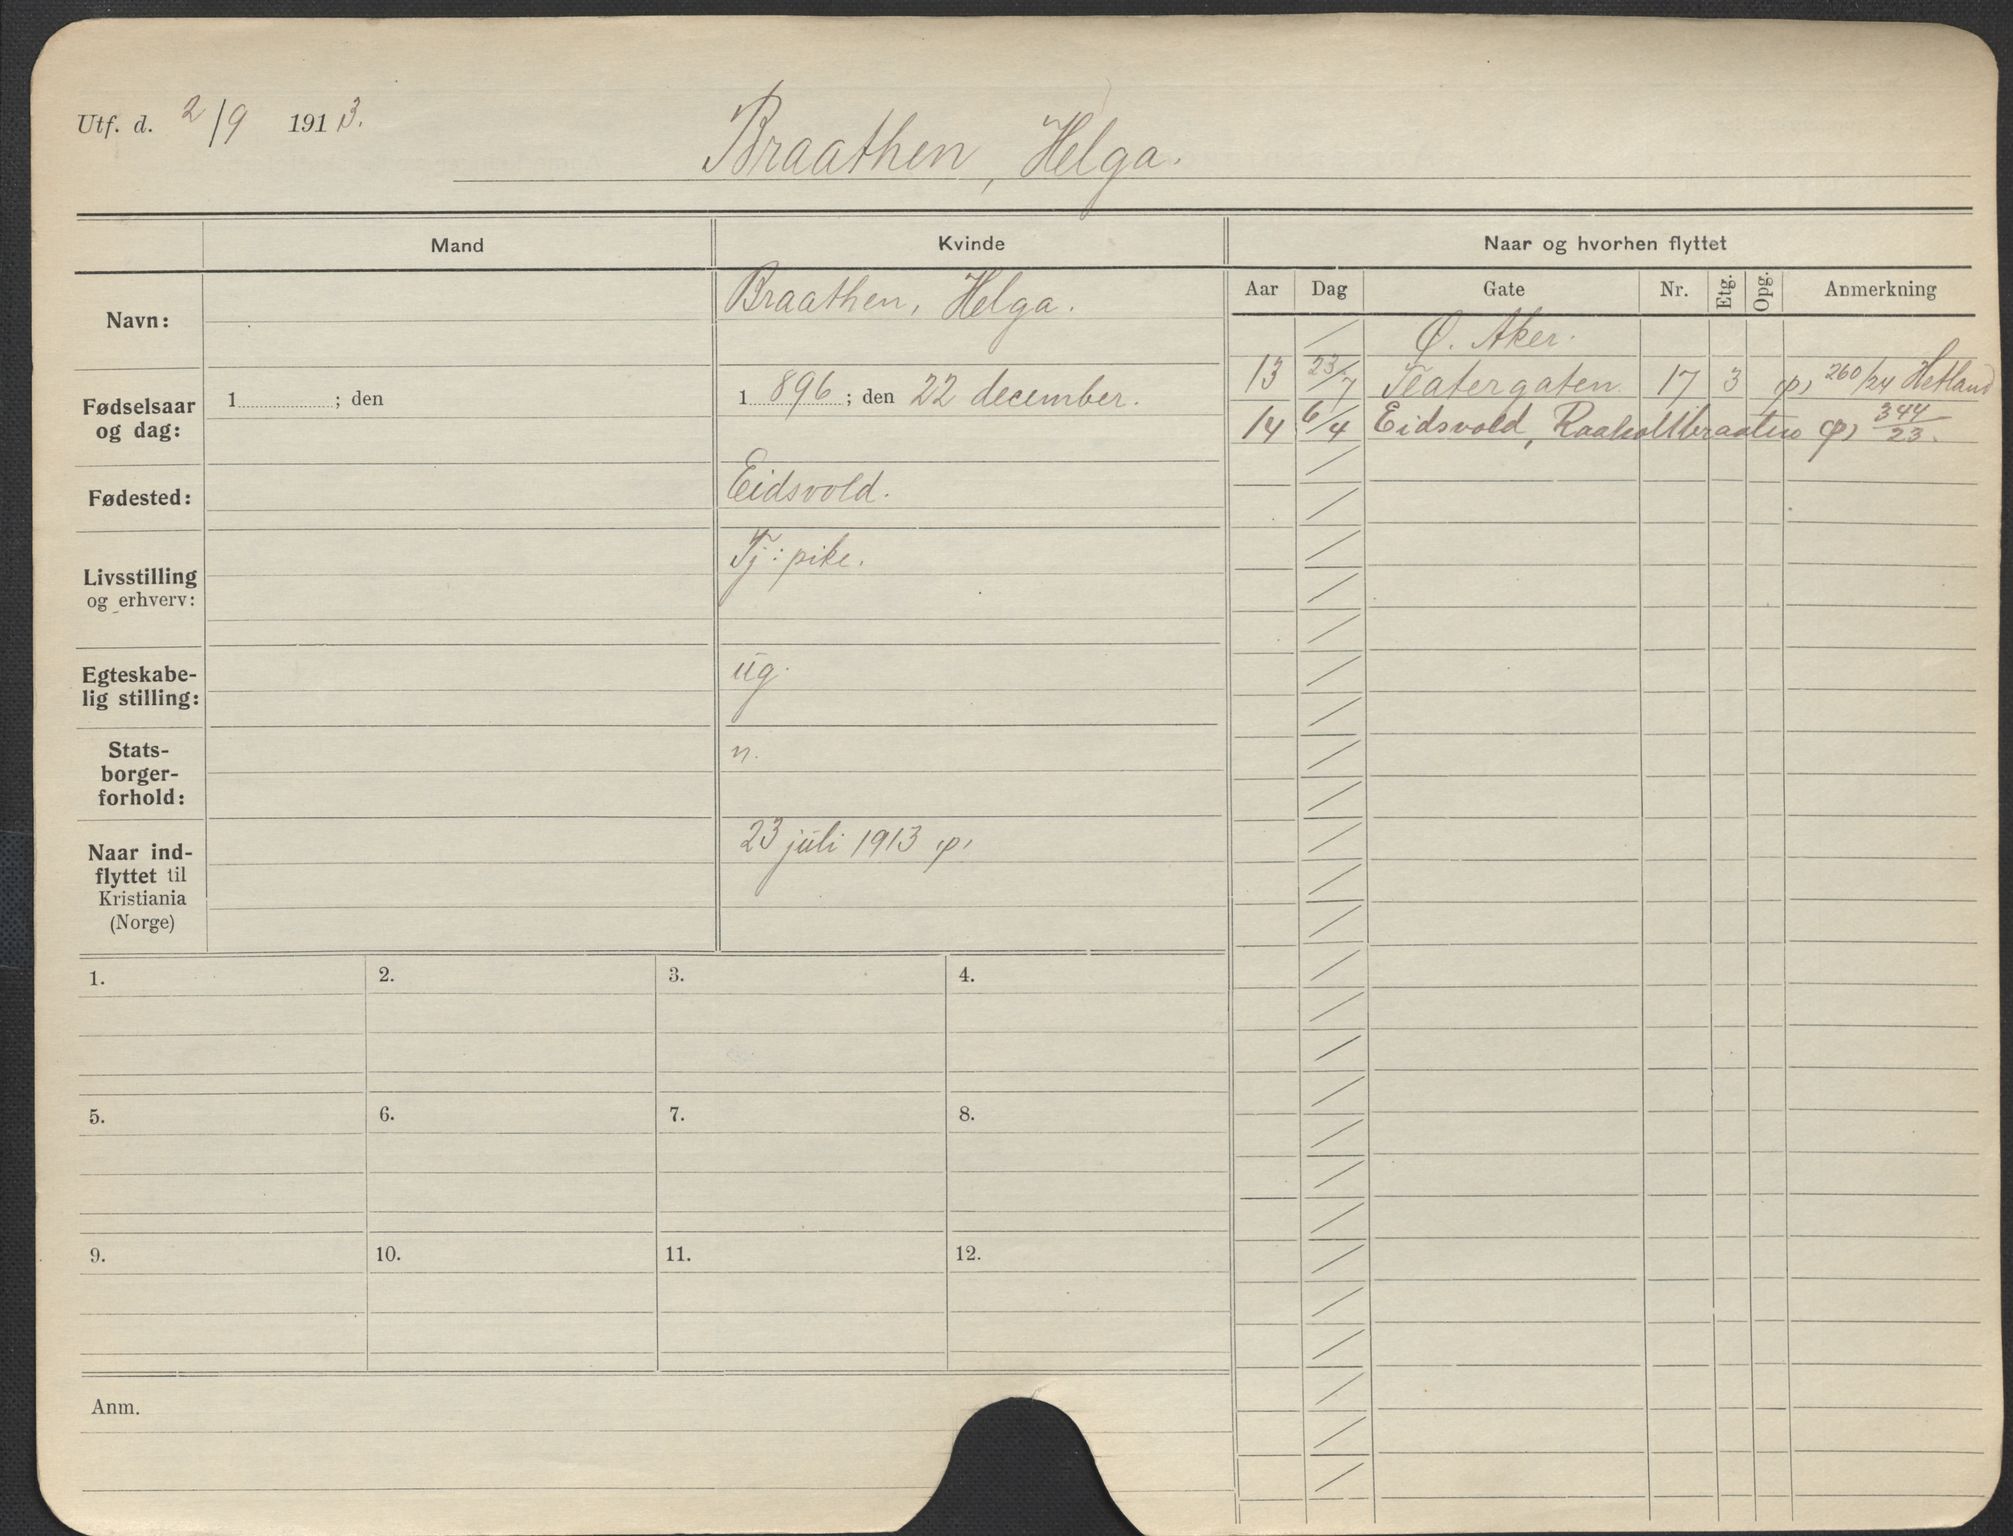 Utf. d. 2/9 1913.
Braathen, Helga.
Mand
Kvinde
Naar og hvorhen flyttet
Navn:
Braathen, Helga.
Fødselsaar
og dag:
1 ; den
1 896 ; den 22 december.
Fødested:
Eidsvold.
Livsstilling
og erhverv:
Tj: pike.
Egteskabe-
lig stilling:
ug.
Stats-
borger-
forhold:
n.
Naar ind-
flyttet til
Kristiania
(Norge)
23 juli 1913
Aar Dag Gate Nr. Etg. Opg. Anmerkning
Ø. Aker.
13 23/7 Teatergaten 17 3 260/24 Hetland
14 6/4 Eidsvold, Raaholtbraaten 344/23.
1. 2. 3. 4.
5. 6. 7. 8.
9. 10. 11. 12.
Anm.